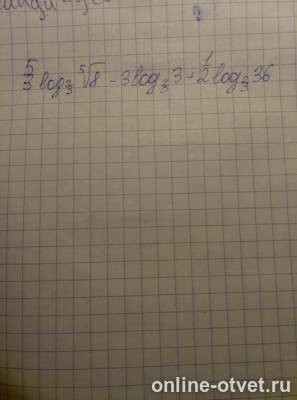 5/3 log_{2/3} ⁵√8 - 3 log_{2/3} 3 + 1/2 log_{2/3} 36
online-otvet.ru